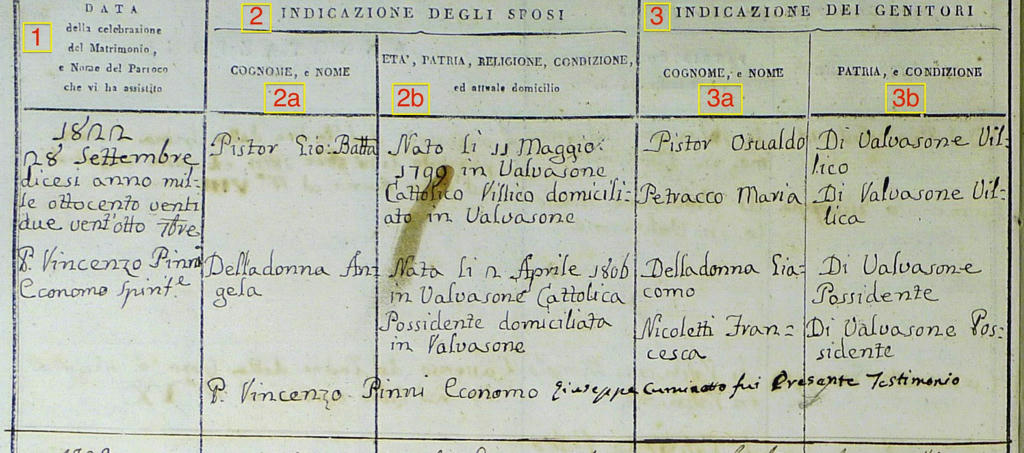 1
DATA
della celebrazione
del Matrimonio,
e Nome del Parroco
che vi ha assistito
2 INDICAZIONE DEGLI SPOSI
COGNOME, e NOME
2a
ETA', PATRIA, RELIGIONE, CONDIZIONE,
ed attuale domicilio
2b
3 INDICAZIONE DEI GENITORI
COGNOME, e NOME
3a
PATRIA, e CONDIZIONE
3b
1822
28 Settembre
dicesi anno mil=
le ottocento venti
due vent'otto 7bre
P. Vincenzo Pinni
Economo Spirit.e
Pistor Gio: Batta
Nato li 11 Maggio
1799 in Valvasone
Cattolico Villico domicili=
ato in Valvasone
Pistor Osualdo
Di Valvasone Vil=
lico
Petracco Maria
Di Valvasone Vil=
lica
Delladonna An=
gela
Nata li 2 Aprile 1806
in Valvasone Cattolica
Possidente domiciliata
in Valvasone
Delladonna Gia=
como
Di Valvasone
Possidente
Nicoletti Fran=
cesca
Di Valvasone Pos=
sidente
P. Vincenzo Pinni Economo Giuseppe fui Presante Testimonio